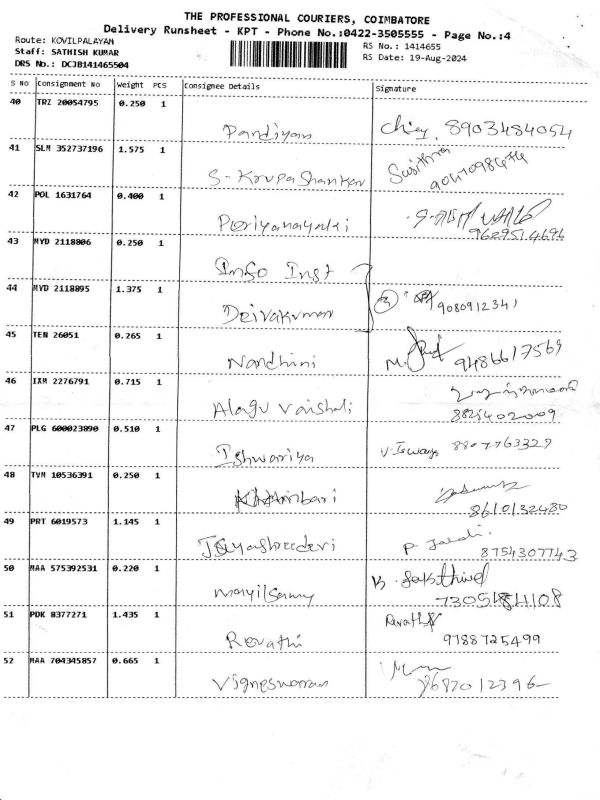 THE PROFESSIONAL COURIERS, COIMBATORE
Delivery Runsheet - KPT - Phone No.:0422-3505555 - Page No.:4
Route: KOVILPALAYAM
Staff: SATHISH KUMAR
DRS No.: DCJB141465504
RS No.: 1414655
RS Date: 19-Aug-2024
S NO Consignment No Weight PCS Consignee Details Signature
40 TRZ 20054795 0.250 1
Pandiyan 8903484054
41 SLM 352737196 1.575 1
S- Krupa Shankar
42 POL 1631764 0.400 1
Periyanayaki
9629514696
43 MYD 2118806 0.250 1
Info Inst
44 MYD 2118895 1.375 1
Deivakumar 3 9080912341
45 TEN 26051 0.265 1
Nandhini 9486617569
46 IXM 2276791 0.715 1
Alagu Vaishali
8825402009
47 PLG 600023890 0.510 1
Ishwariya 8807763329
48 TVM 10536391 0.250 1
8610132480
49 PRT 6019573 1.145 1
Jeyashreedevi
8754307743
50 MAA 575392531 0.220 1
Mayilsamy
51 PDK 8377271 1.435 1
Revathi Revathi
9788725499
52 MAA 704345857 0.665 1
Vigneswaran